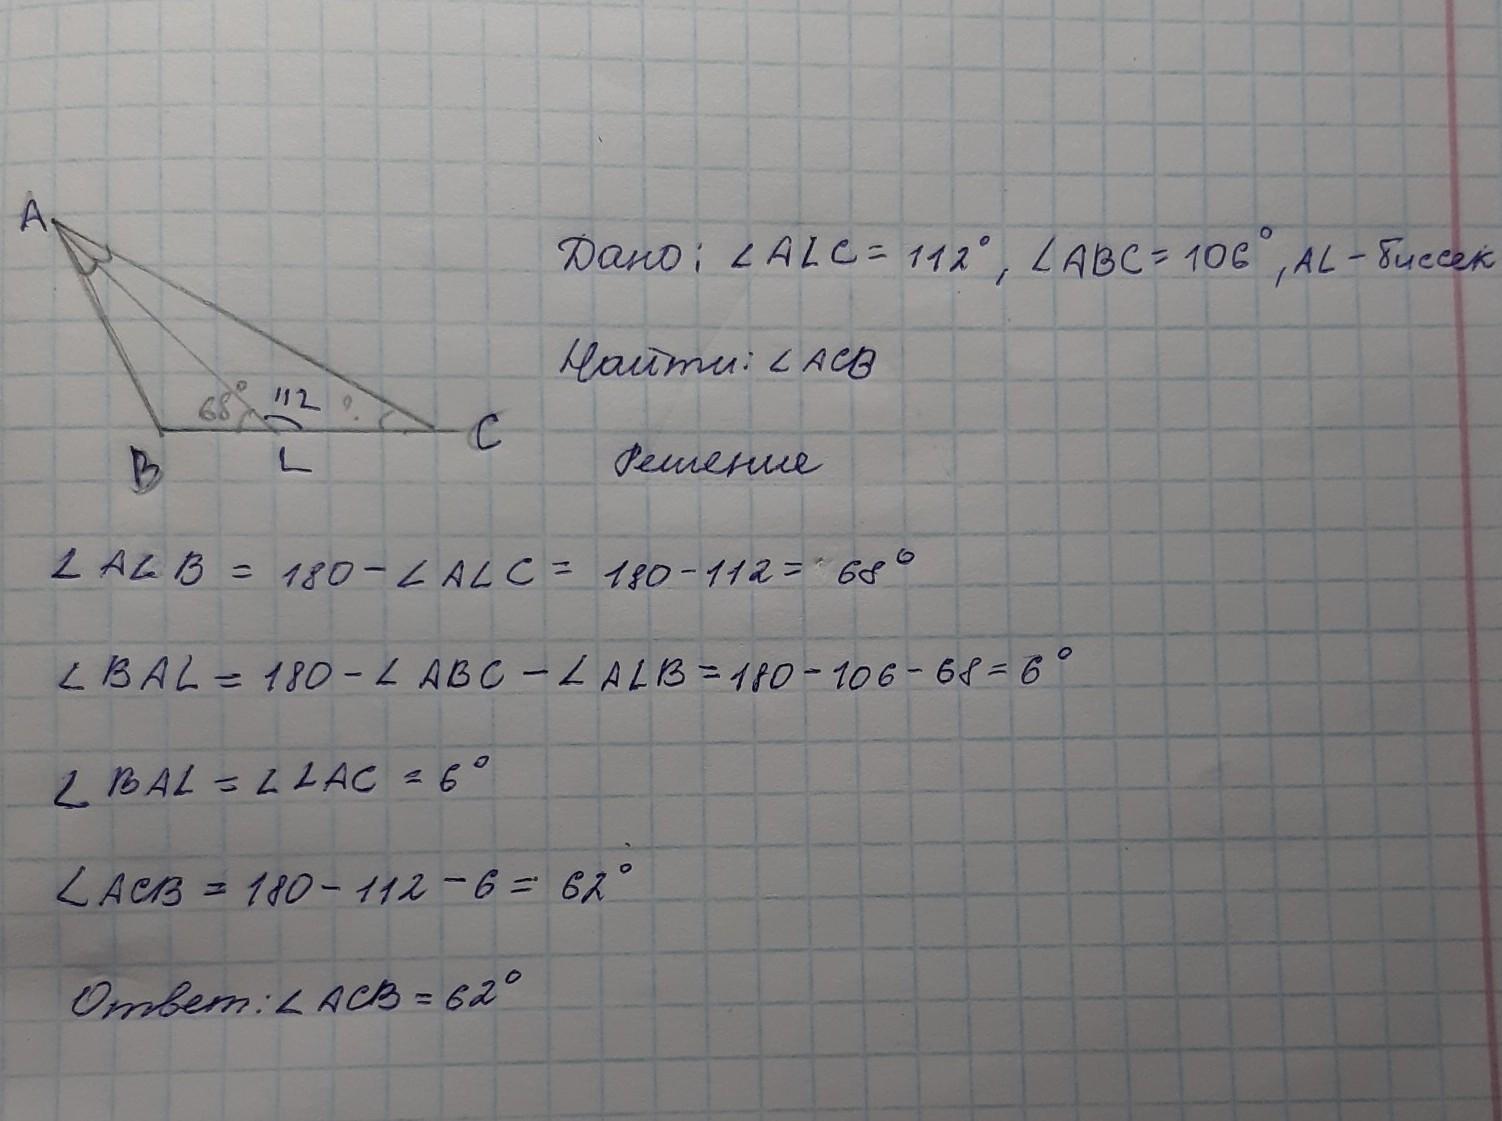 A
Дано: ∠ALC = 112°, ∠ABC = 106°, AL - биссек
Найти: ∠ACB
68° 112 ?
B L C
Решение
∠ALB = 180 - ∠ALC = 180 - 112 = 68°
∠BAL = 180 - ∠ABC - ∠ALB = 180 - 106 - 68 = 6°
∠BAL = ∠LAC = 6°
∠ACB = 180 - 112 - 6 = 62°
Ответ: ∠ACB = 62°